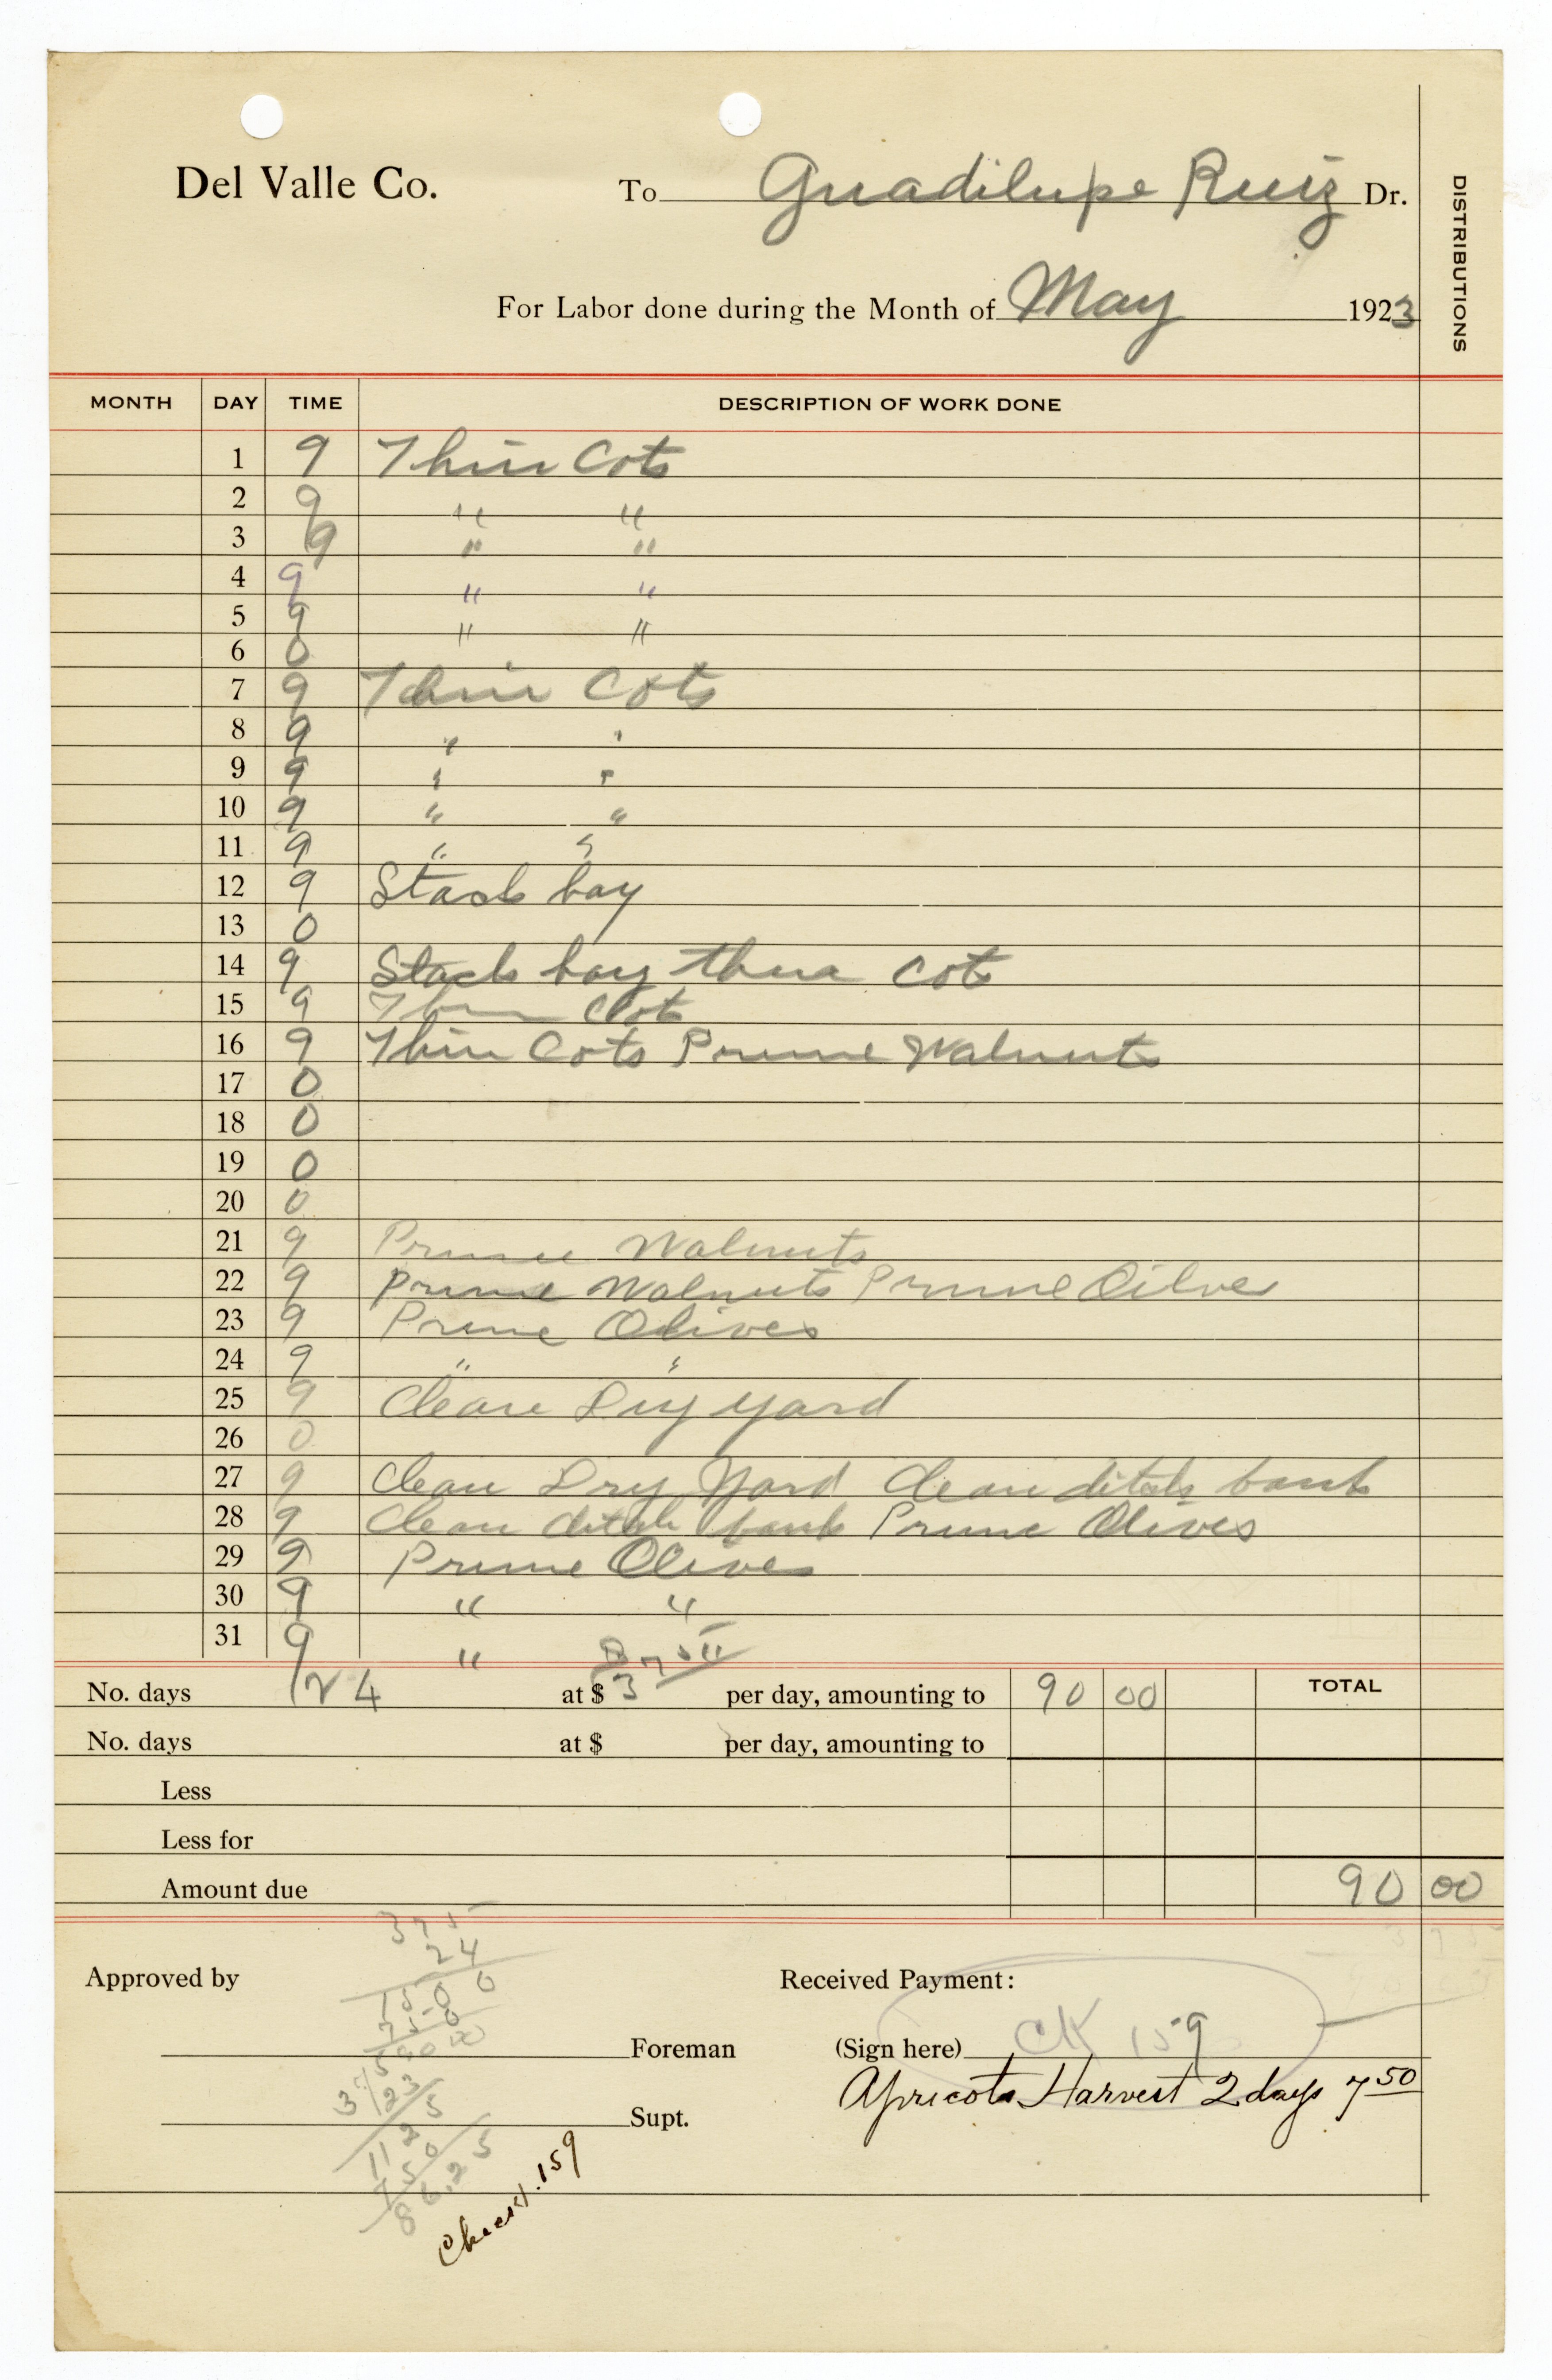 Del Valle Co. To Guadilupe Ruiz Dr.
DISTRIBUTIONS
For Labor done during the Month of May 1923
MONTH DAY TIME DESCRIPTION OF WORK DONE
1 9 Thin Cots
2 9 " "
3 9 " "
4 9 " "
5 9 " "
6 0
7 9 Thin Cots
8 9 " "
9 9 " "
10 9 " "
11 9 " "
12 9 Stack hay
13 0
14 9 Stack hay thin cots
15 9 Thin Cots
16 9 Thin Cots Prune Walnuts
17 0
18 0
19 0
20 0
21 9 Prune Walnuts
22 9 Prune Walnuts Prune Oilves
23 9 Prune Olives
24 9 " "
25 9 Clean Dry yard
26 0
27 9 Clean Dry Yard Clean ditch bank
28 9 Clean ditch bank Prune Olives
29 9 Prune Olives
30 9 " "
31 9 " "
No. days 24 at $ 3 75 per day, amounting to 90 00 TOTAL
No. days at $ per day, amounting to
Less
Less for
Amount due 90 00
375
24
1500
750
9000
Approved by Received Payment:
Foreman (Sign here) CK 159
Apricots Harvest 2 days 7 50
Supt.
375
23
1125
750
86.25
Check. 159